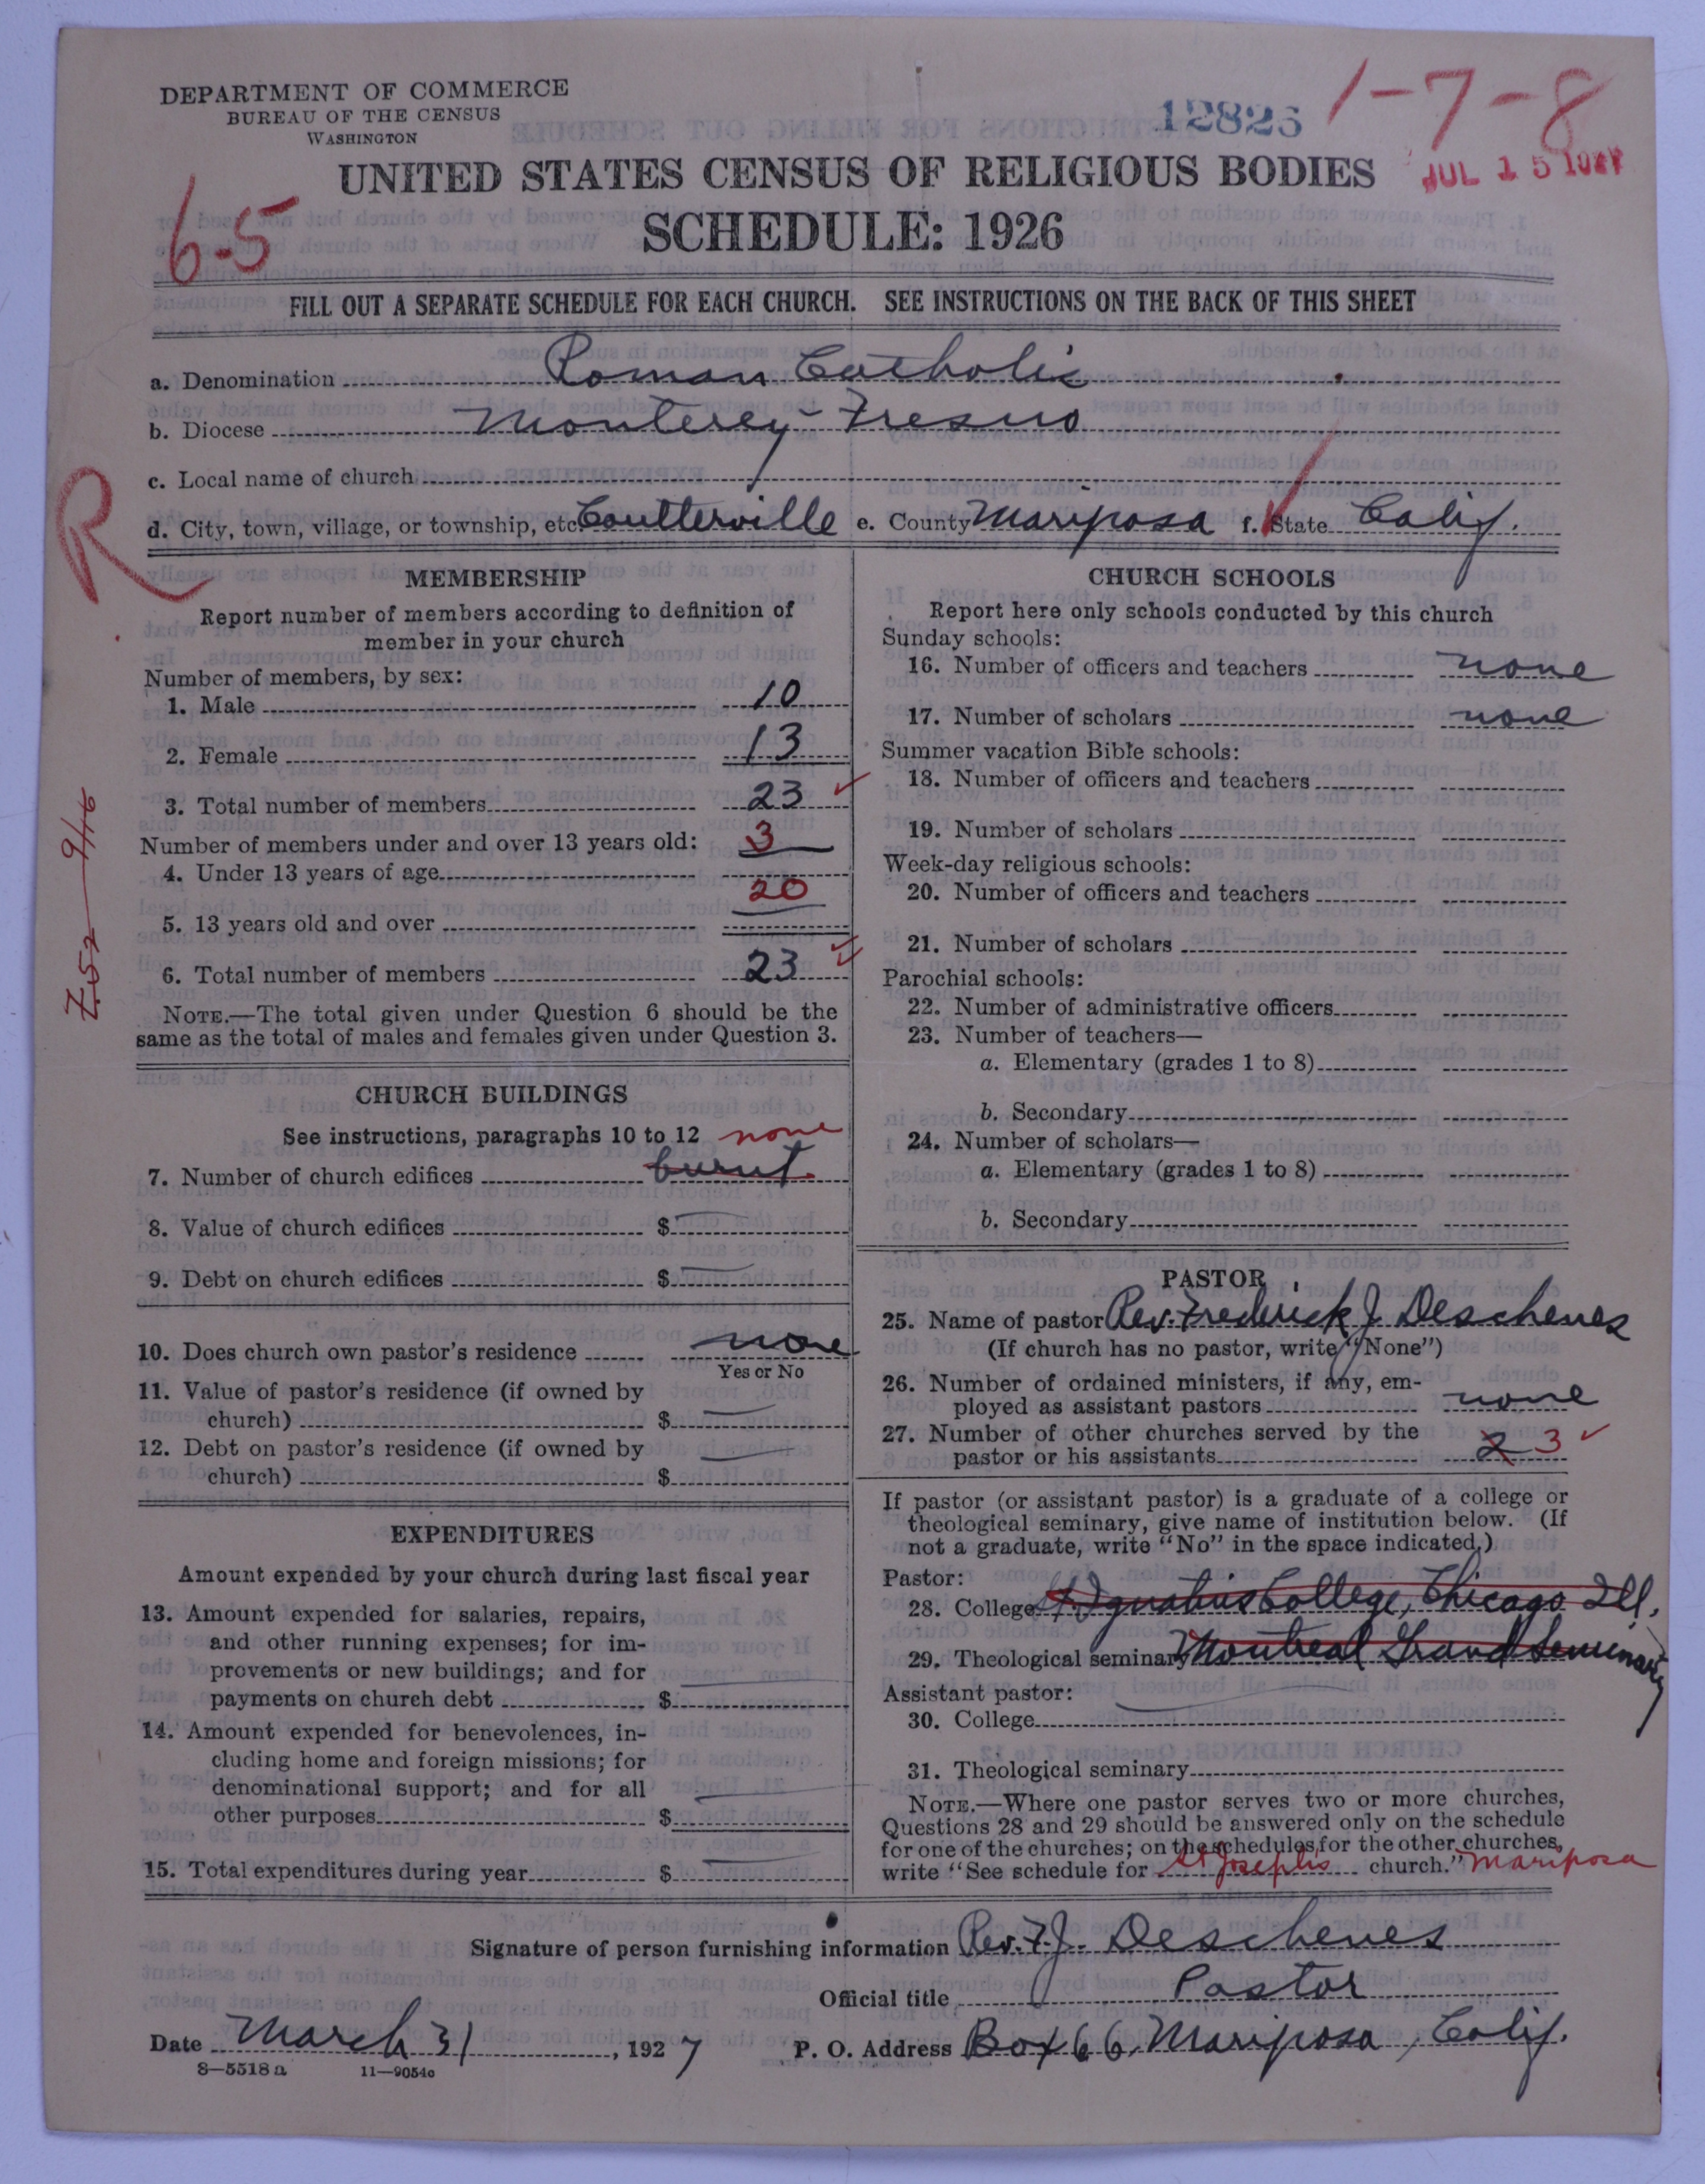 DEPARTMENT OF COMMERCE
BUREAU OF THE CENSUS
WASHINGTON
12826
1-7-8
JUL 15 1927
UNITED STATES CENSUS OF RELIGIOUS BODIES
SCHEDULE: 1926
6-5
FILL OUT A SEPARATE SCHEDULE FOR EACH CHURCH. SEE INSTRUCTIONS ON THE BACK OF THIS SHEET
a. Denomination Roman Catholic
b. Diocese Monterey-Fresno
c. Local name of church
R
d. City, town, village, or township, etc. Coulterville e. County Mariposa f. State Calif.
MEMBERSHIP
Report number of members according to definition of
member in your church
Number of members, by sex:
1. Male 10
2. Female 13
3. Total number of members 23
Number of members under and over 13 years old: 3
4. Under 13 years of age
20
5. 13 years old and over
6. Total number of members 23
NOTE.—The total given under Question 6 should be the
same as the total of males and females given under Question 3.
CHURCH BUILDINGS
See instructions, paragraphs 10 to 12 none
7. Number of church edifices burnt.
8. Value of church edifices $
9. Debt on church edifices $
10. Does church own pastor's residence none
Yes or No
11. Value of pastor's residence (if owned by
church) $
12. Debt on pastor's residence (if owned by
church) $
EXPENDITURES
Amount expended by your church during last fiscal year
13. Amount expended for salaries, repairs,
and other running expenses; for im-
provements or new buildings; and for
payments on church debt $
14. Amount expended for benevolences, in-
cluding home and foreign missions; for
denominational support; and for all
other purposes $
15. Total expenditures during year $
CHURCH SCHOOLS
Report here only schools conducted by this church
Sunday schools:
16. Number of officers and teachers none
17. Number of scholars none
Summer vacation Bible schools:
18. Number of officers and teachers
19. Number of scholars
Week-day religious schools:
20. Number of officers and teachers
21. Number of scholars
Parochial schools:
22. Number of administrative officers
23. Number of teachers—
a. Elementary (grades 1 to 8)
b. Secondary
24. Number of scholars—
a. Elementary (grades 1 to 8)
b. Secondary
PASTOR
25. Name of pastor Rev. Frederick J Deschenes
(If church has no pastor, write "None")
26. Number of ordained ministers, if any, em-
ployed as assistant pastors none
27. Number of other churches served by the
pastor or his assistants 2 3
If pastor (or assistant pastor) is a graduate of a college or
theological seminary, give name of institution below. (If
not a graduate, write "No" in the space indicated.)
Pastor:
28. College St Ignatius College, Chicago Ill.
29. Theological seminary Montreal Grand Seminary
Assistant pastor:
30. College
31. Theological seminary
NOTE.—Where one pastor serves two or more churches,
Questions 28 and 29 should be answered only on the schedule
for one of the churches; on the schedules for the other churches,
write "See schedule for St Joseph's church." Mariposa
Signature of person furnishing information Rev. F. J. Deschenes
Official title Pastor
Date March 31, 1927 P. O. Address Box 66, Mariposa, Calif.
8-5518a 11-9054c